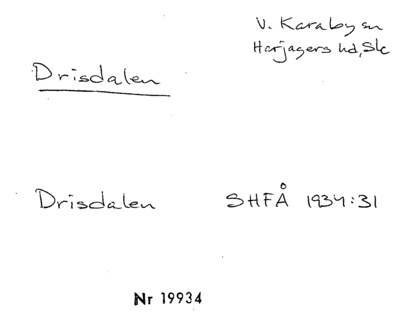 V. Karaby sn
Harjagers hd, Sk
Drisdalen
Drisdalen SHFÅ 1934:31
Nr 19934